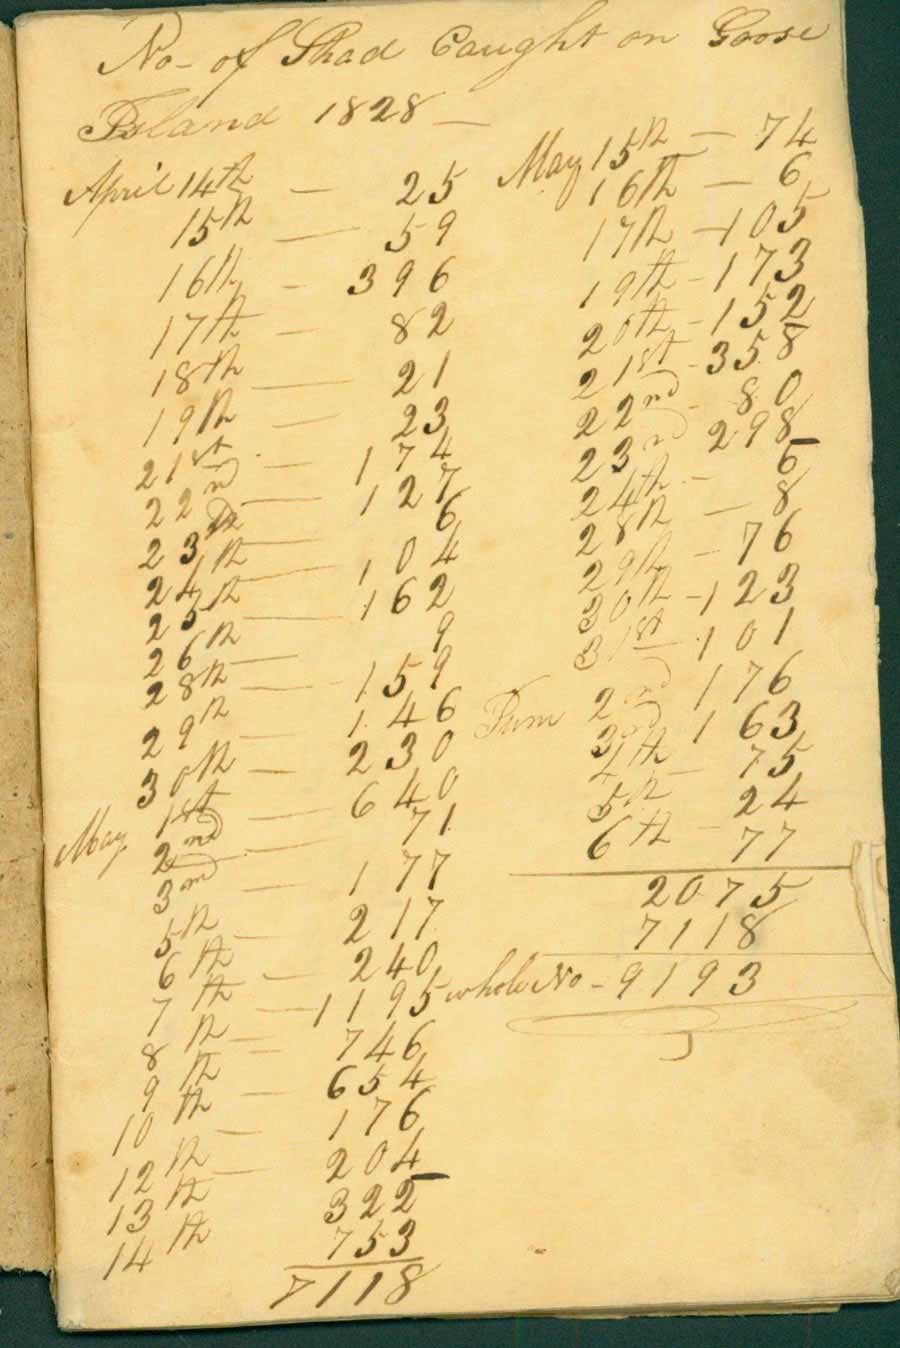 No- of Shad Caught on Goose
Island 1828 —
April 14th — 25
15th — 59
16th - 396
17th — 82
18th — 21
19th — 23
21st — 174
22nd — 127
23th — 6
24th — 104
25th — 162
26th — 9
28th — 159
29th — 146
30th — 230
May 1st — 640
2nd — 71
3nd — 177
5th — 217
6th — 240
7th — 1195
8th — 746
9th — 654
10th — 176
12th — 204
13th 322
14th 753
7118
May 15th — 74
16th — 6
17th — 105
19th - 173
20th - 152
21st - 358
22nd - 80
23nd 298
24th - 6
28th — 8
29th - 76
30th - 123
31st - 101
June 2nd 176
3nd 163
4th - 75
5th - 24
6th - 77
2075
7118
whole No - 9193